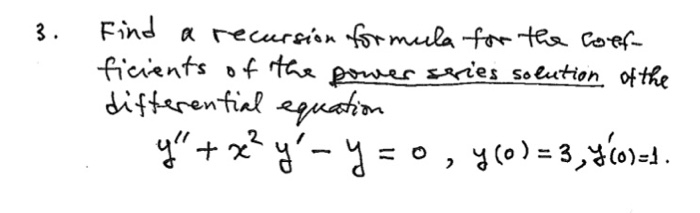 3. Find a recursion formula for the coef-
ficients of the power series solution of the
differential equation
y'' + x² y' - y = 0 , y(0) = 3, y'(0)=1.